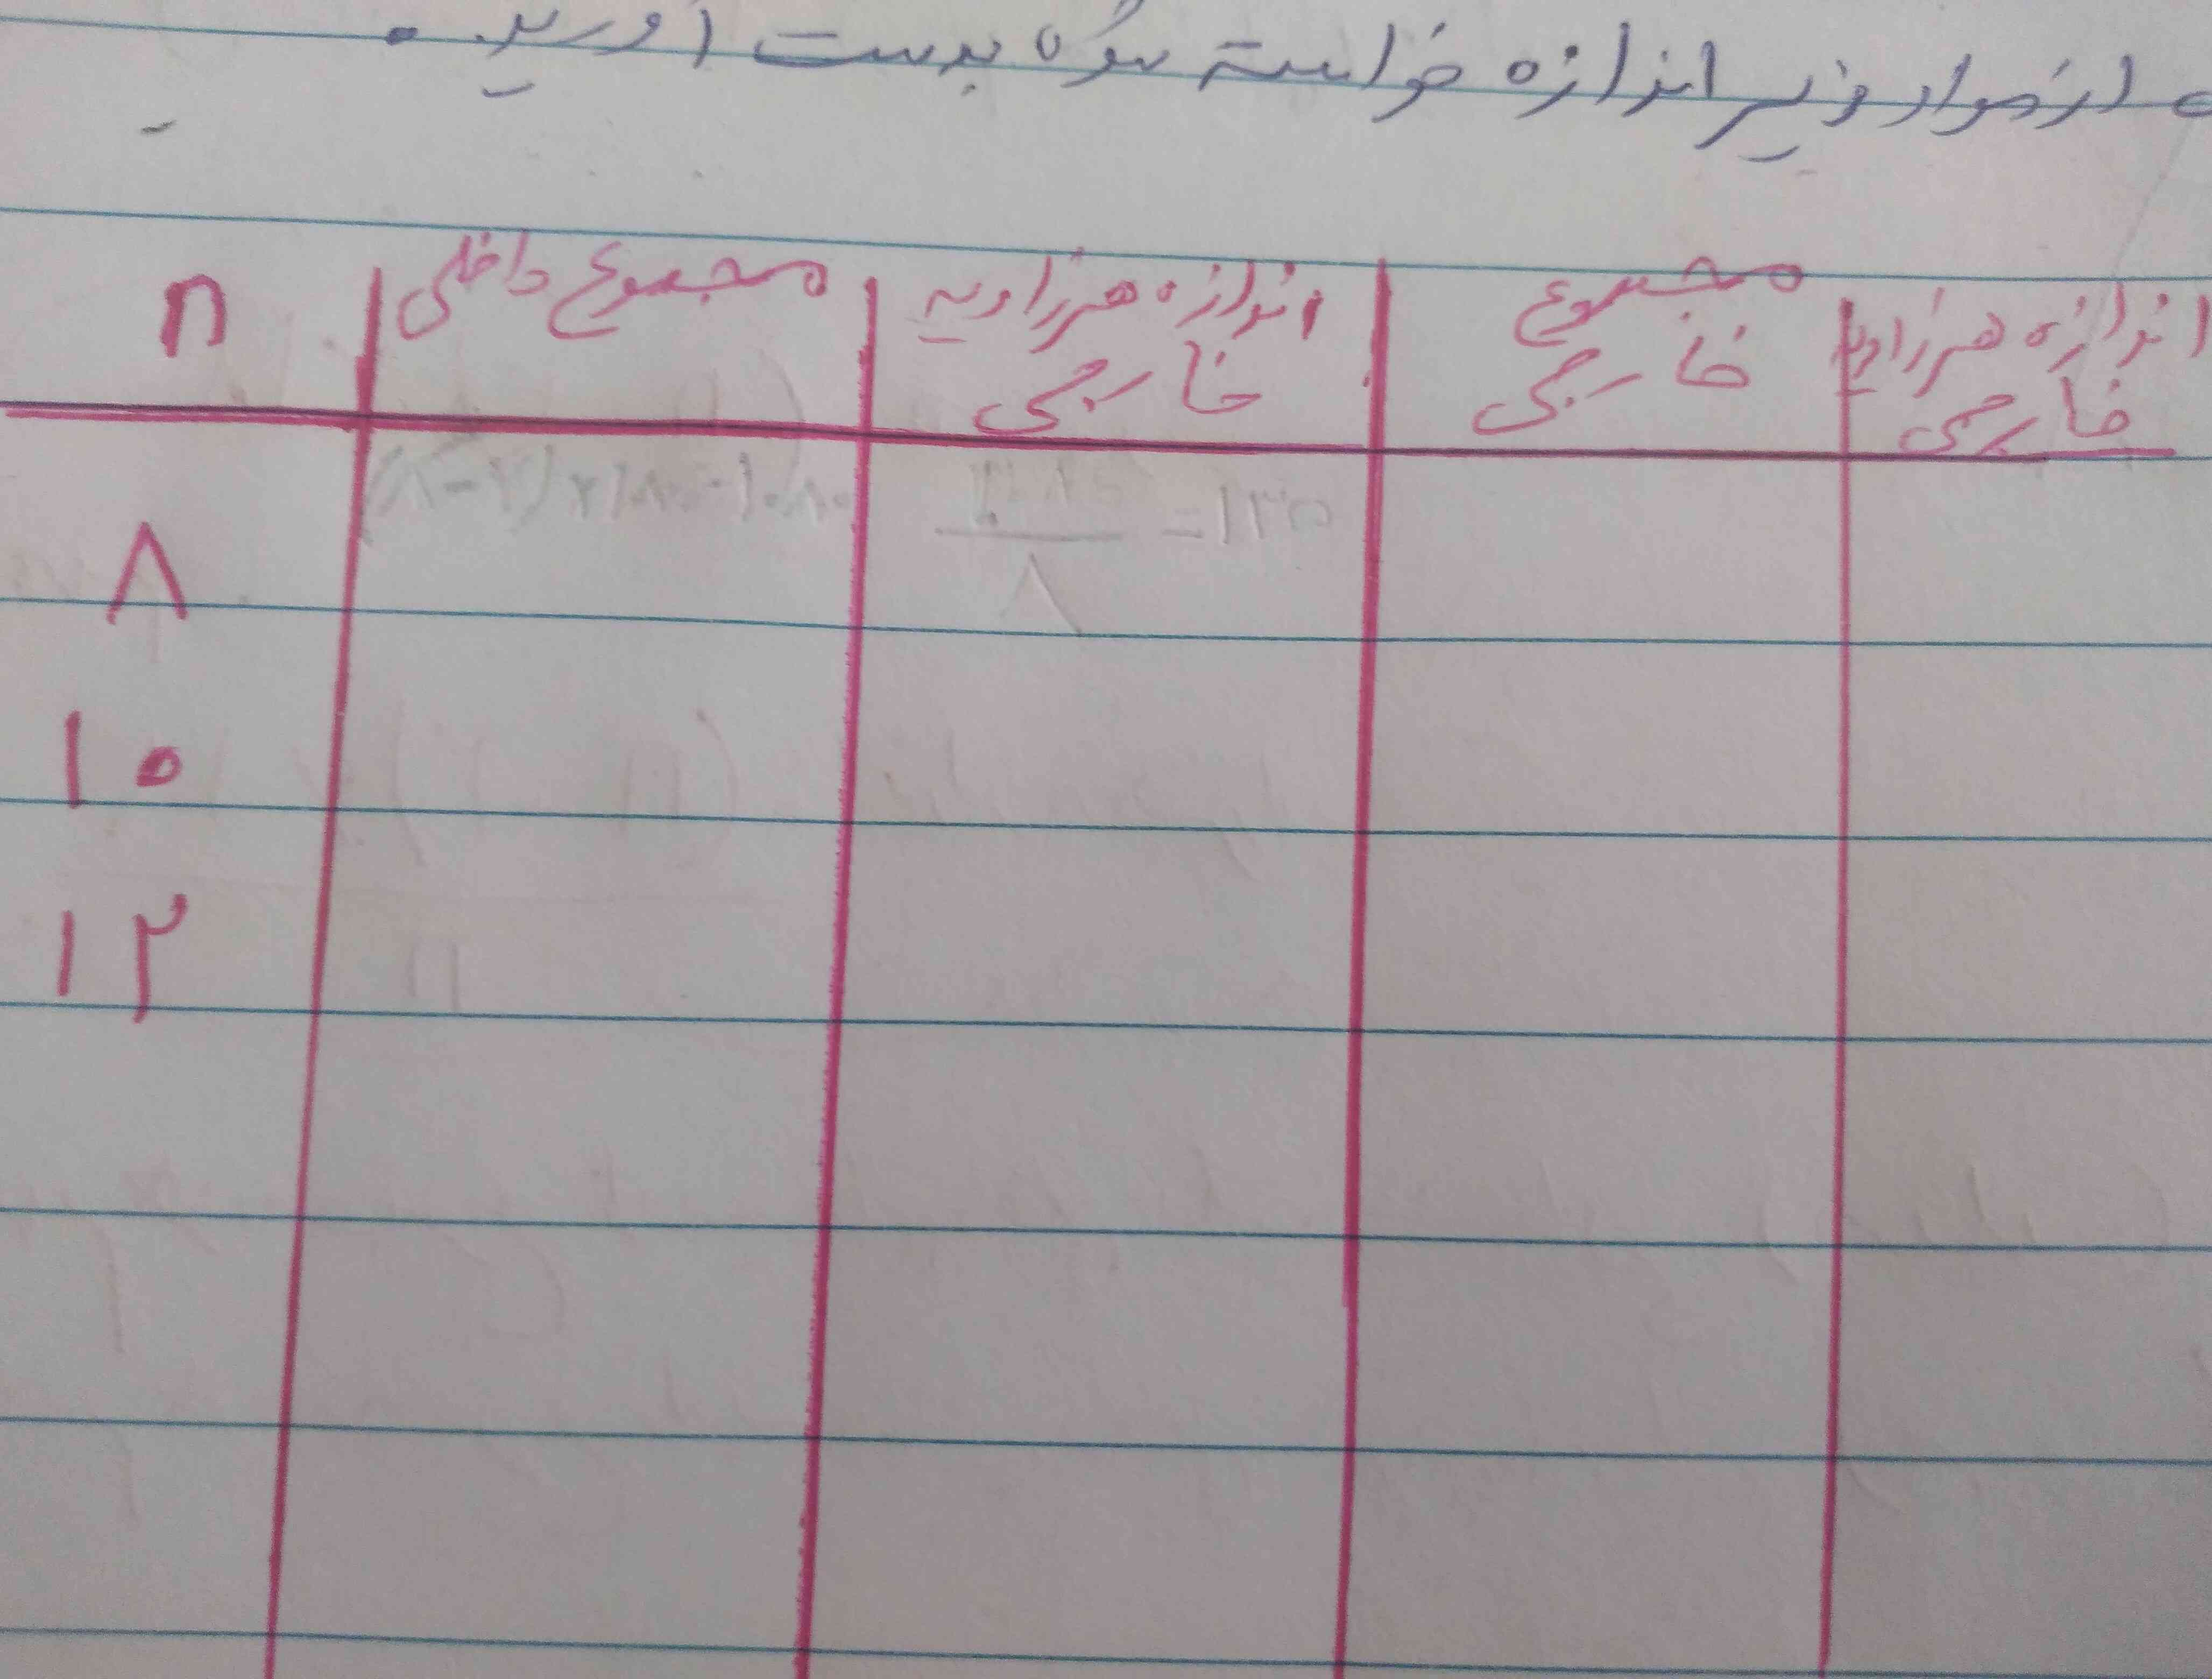 از موارد زیر اندازه خواسته شده بدست آورید.
n مجموع داخلی اندازه هر زاویه خارجی مجموع خارجی اندازه هر زاویه خارجی
۸ (۸-۲)×۱۸۰=۱۰۸۰ ۱۰۸۰/۸=۱۳۵
۱۰
۱۲